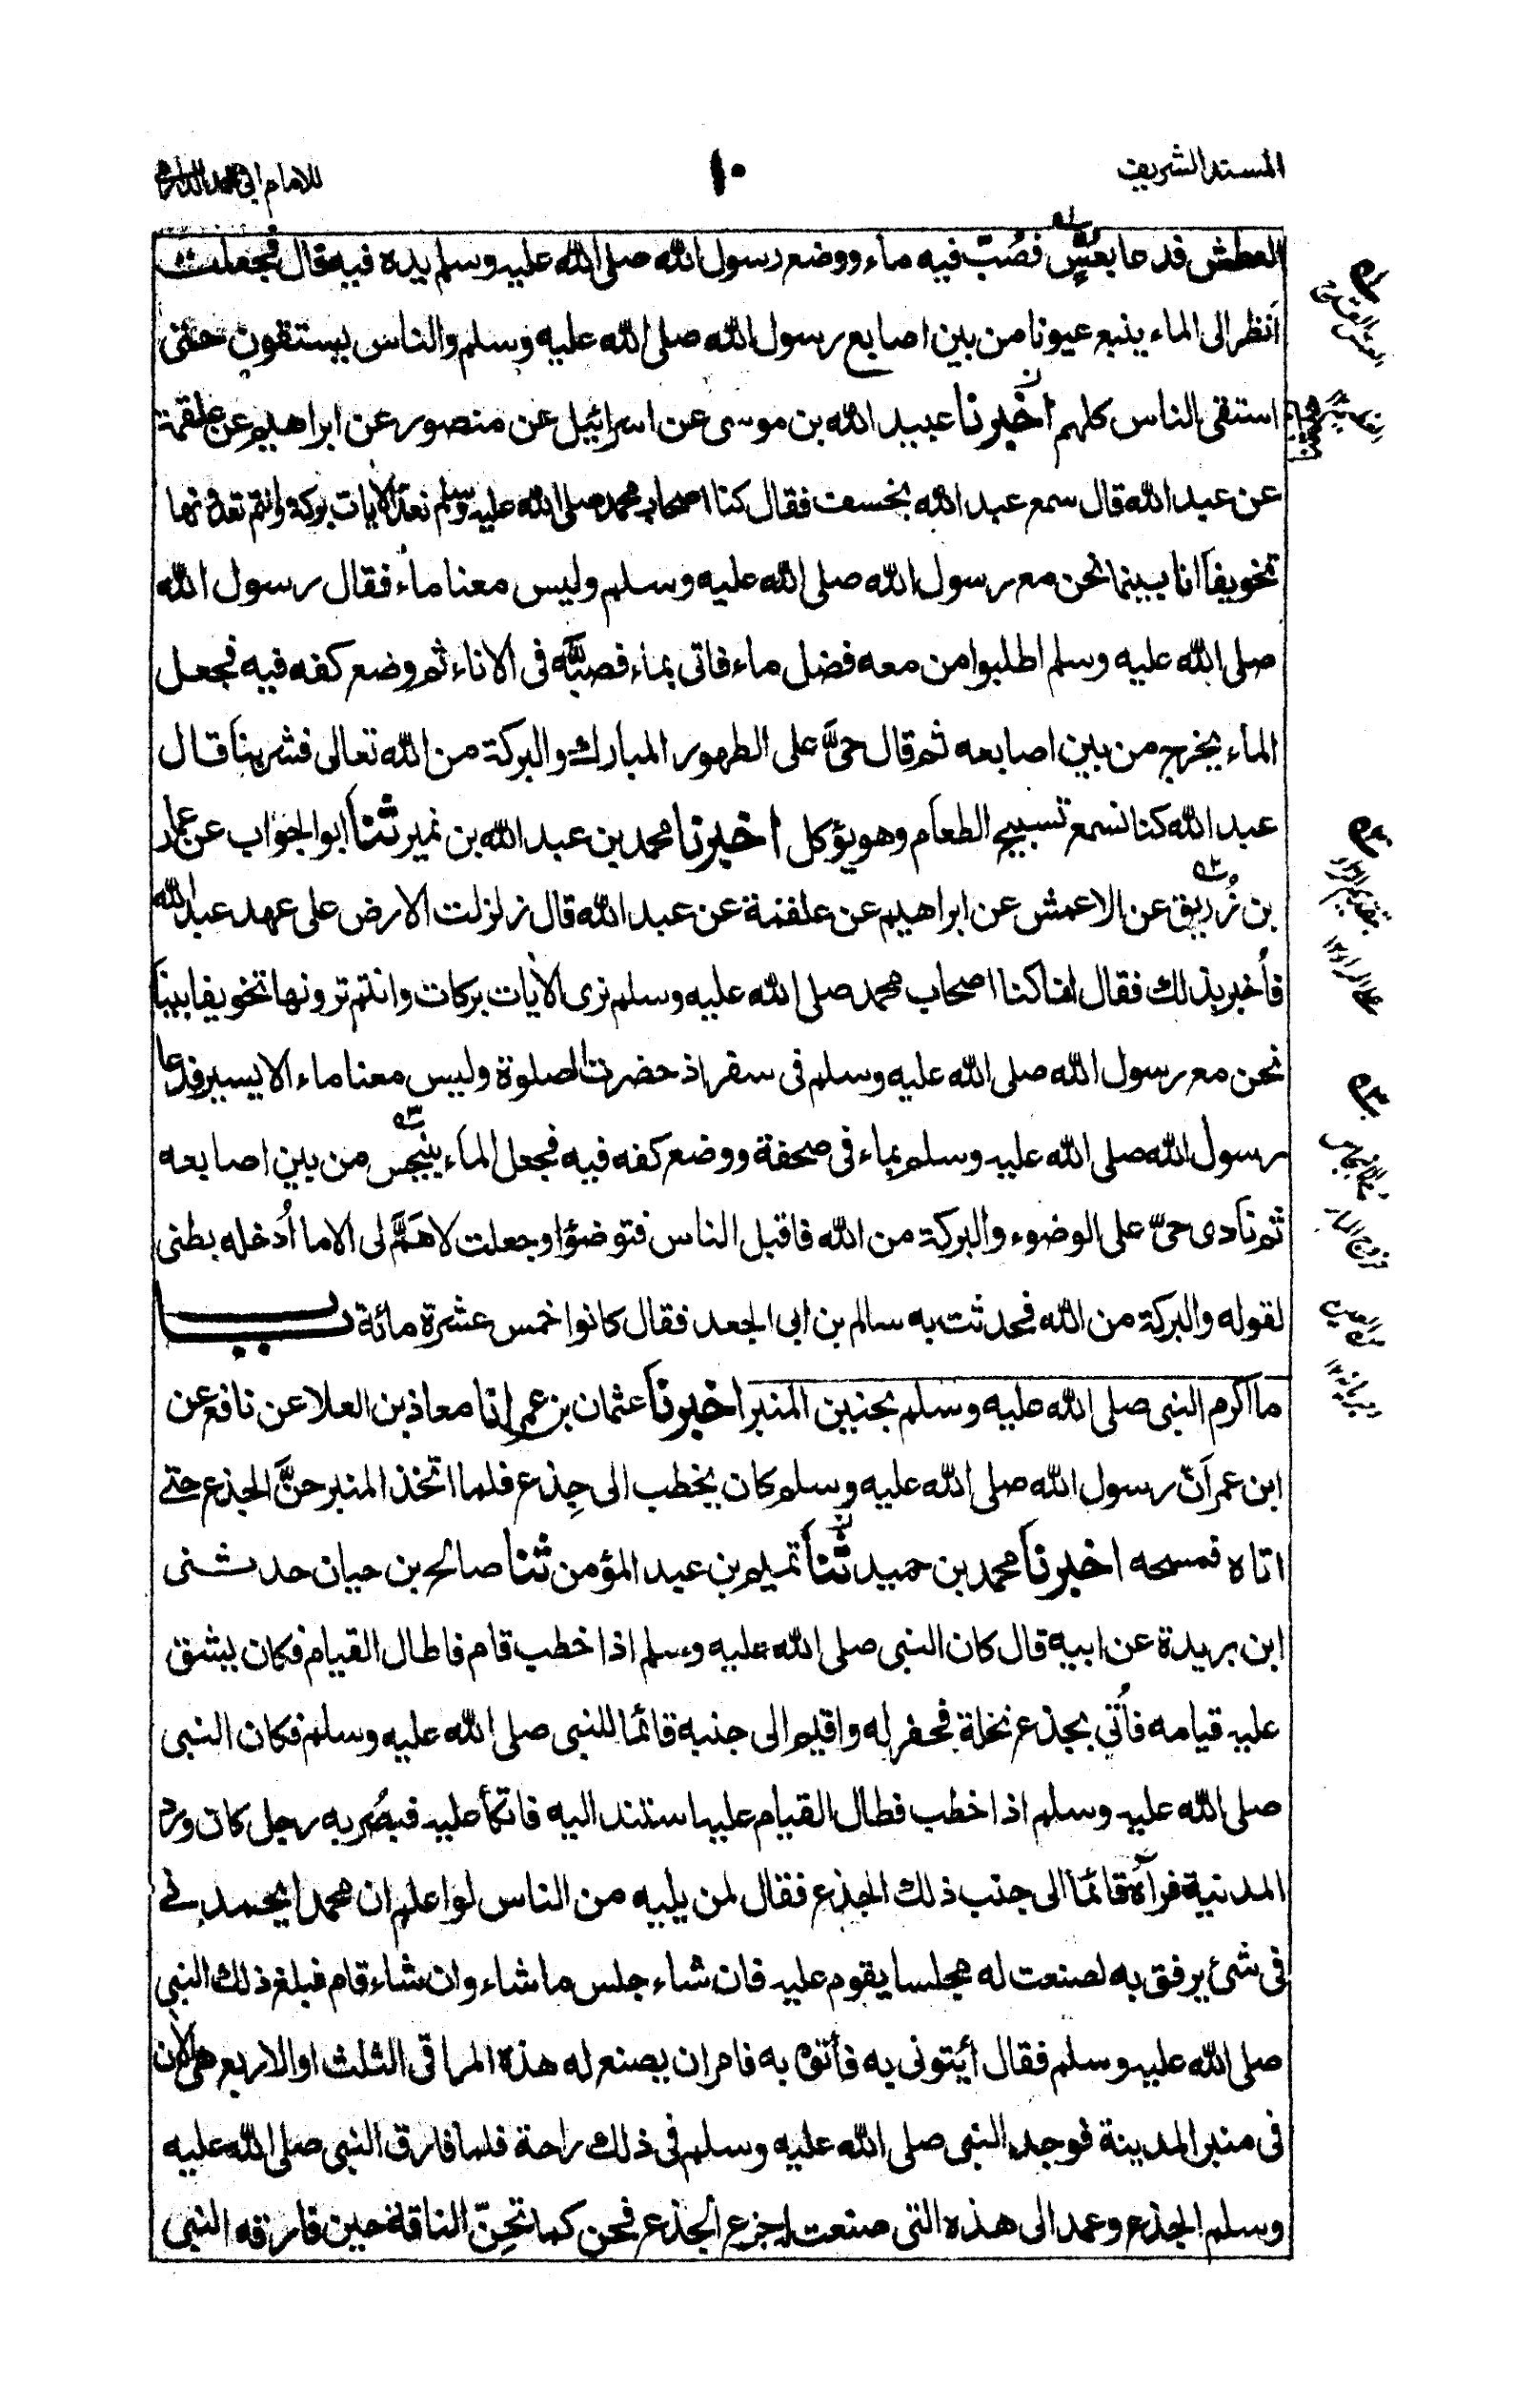 المسند الشريف
١٠
للامام ابى محمد الدارمى
العطش فدعا بعُسٍّ فصُبّ فيه ماء ووضع رسول الله صلى الله عليه وسلم يده فيه قال فجعلت
انظر الى الماء ينبع عيونا من بين اصابع رسول الله صلى الله عليه وسلم والناس يستقون حتى
استقى الناس كلهم اخبرنا عبيد الله بن موسى عن اسرائيل عن منصور عن ابراهيم عن علقمة
عن عبد الله قال سمع عبد الله بخسف فقال كنا اصحاب محمد صلى الله عليه وسلم نعدّ الايات بركة وانتم تعدونها
تخويفا انا بينما نحن مع رسول الله صلى الله عليه وسلم وليس معنا ماء فقال رسول الله
صلى الله عليه وسلم اطلبوا من معه فضل ماء فاتى بماء فصبَّه فى الاناء ثم وضع كفه فيه فجعل
الماء يخرج من بين اصابعه ثم قال حىَّ على الطهور المبارك والبركة من الله تعالى فشربنا قال
عبد الله كنا نسمع تسبيح الطعام وهو يؤكل اخبرنا محمد بن عبد الله بن نمير ثنا ابو الجواب عن عمار
بن زُريق عن الاعمش عن ابراهيم عن علقمة عن عبد الله قال زلزلت الارض على عهد عبد الله
فأُخبر بذلك فقال انا كنا اصحاب محمد صلى الله عليه وسلم نرى الايات بركات وانتم ترونها تخويفا بينا
نحن مع رسول الله صلى الله عليه وسلم فى سفر اذ حضرت الصلوة وليس معنا ماء الا يسير فدعا
رسول الله صلى الله عليه وسلم بماء فى صحفة ووضع كفه فيه فجعل الماء ينبجس من بين اصابعه
ثم نادى حىّ على الوضوء والبركة من الله فاقبل الناس فتوضؤا وجعلت لا هَمَّ لى الا ما اُدخله بطنى
لقوله والبركة من الله فحدثت به سالم بن ابى الجعد فقال كانوا خمس عشرة مائة باب
ما اكرم النبى صلى الله عليه وسلم بحنين المنبر اخبرنا عثمان بن عمر انا معاذ بن العلا عن نافع عن
ابن عمر انّ رسول الله صلى الله عليه وسلم كان يخطب الى جِذع فلما اتّخذ المنبر حنَّ الجذع حتى
اتاه فمسحه اخبرنا محمد بن حميد ثنا تميم بن عبد المؤمن ثنا صالح بن حيان حدثنى
ابن بريدة عن ابيه قال كان النبى صلى الله عليه وسلم اذا خطب قام فاطال القيام فكان يشق
عليه قيامه فأُتى بجذع نخلة فحفر له واقيم الى جنبه قائما للنبى صلى الله عليه وسلم فكان النبى
صلى الله عليه وسلم اذا خطب فطال القيام عليه استند اليه فاتكأ عليه فبصُر به رجل كان ورد
المدينة فرآه قائما الى جنب ذلك الجذع فقال لمن يليه من الناس لو اعلم ان محمدا يحمدنى
فى شئ يرفق به لصنعت له مجلسا يقوم عليه فان شاء جلس ما شاء وان شاء قام فبلغ ذلك النبى
صلى الله عليه وسلم فقال أيتونى به فأتوه به فامر ان يصنع له هذه المراقى الثلث او الاربع هى الان
فى منبر المدينة فوجد النبى صلى الله عليه وسلم فى ذلك راحة فلما فارق النبى صلى الله عليه
وسلم الجذع وعمد الى هذه التى صنعت له جزع الجذع فحن كما تحِنّ الناقة حين فارقه النبى